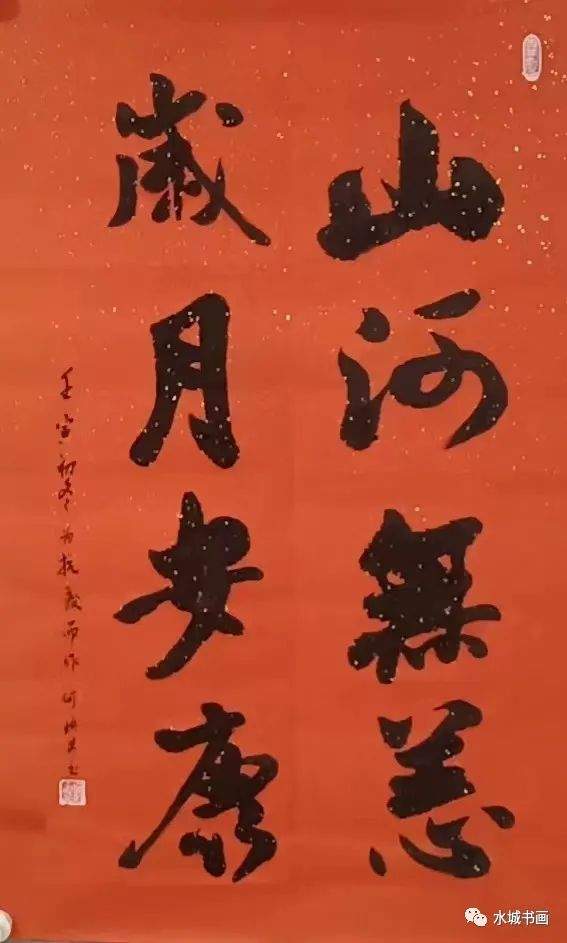 山河無恙
歲月安康
壬寅初冬為抗疫而作
水城书画